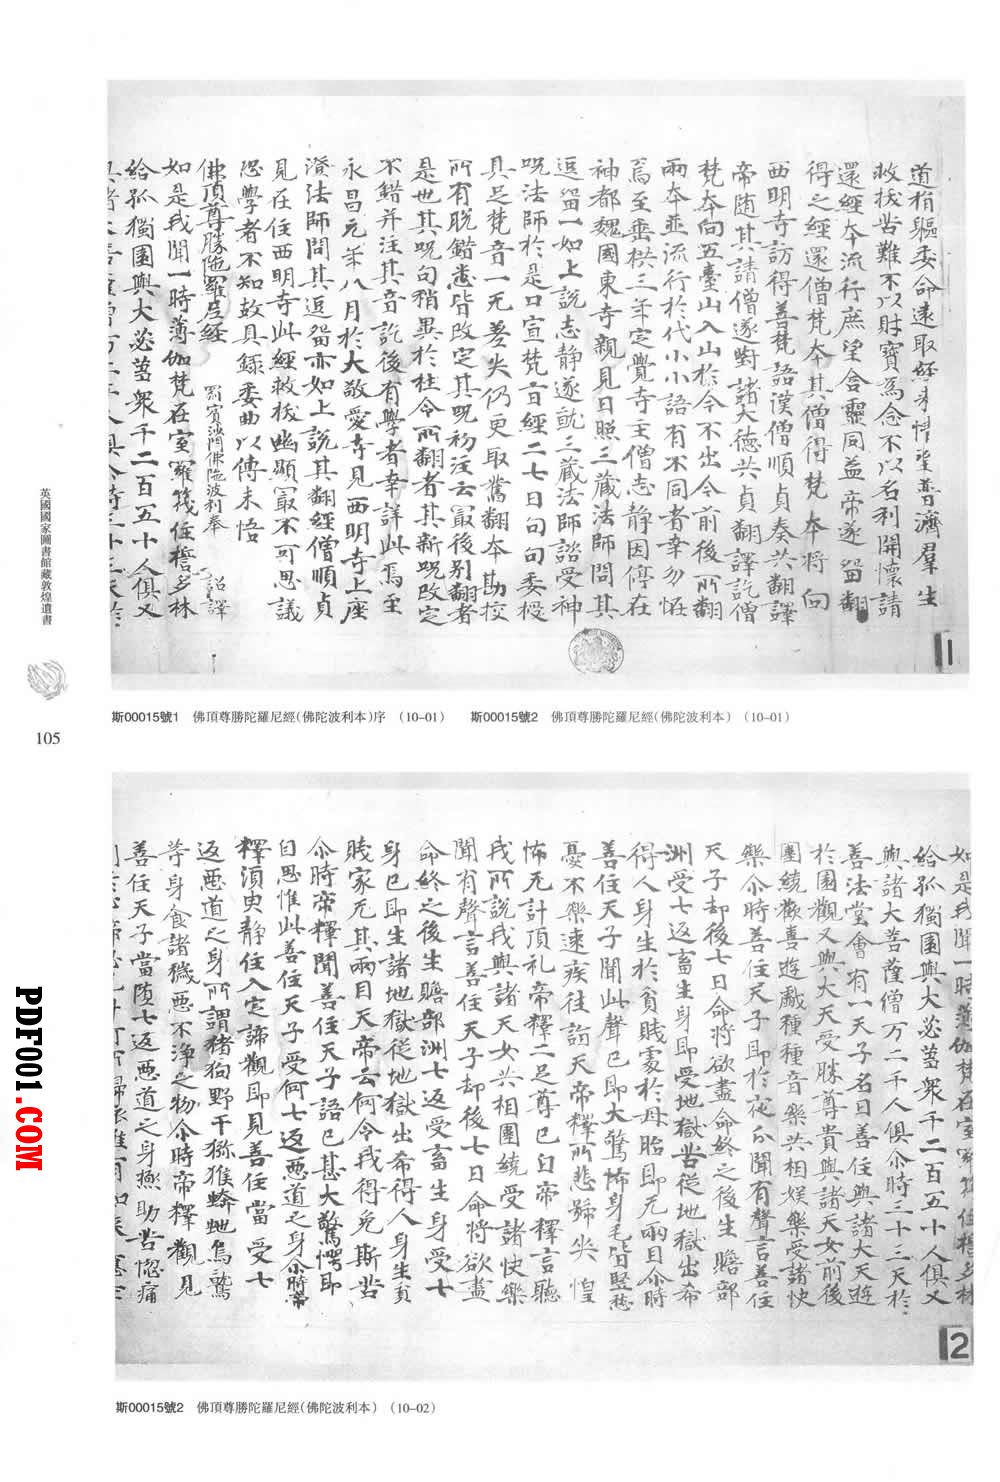 道捐軀委命遠取經來情望普濟羣生
救拔苦難不以財寶爲念不以名利開懷請
還經夲流行庶望含靈同益帝遂留翻
得之經還僧梵夲其僧得梵夲將向
西明寺訪得善梵語漢僧順貞奏共翻譯
帝随其請僧遂對諸大德共貞翻譯訖僧
梵夲向五臺山入山於今不出今前後所翻
兩夲並流行於代小小語有不同者幸勿恠
焉至垂拱三年定覺寺主僧志静因停在
神都魏國東寺親見日照三藏法師問其
逗留一如上說志静遂就三藏法師諮受神
呪法師於是口宣梵音經二七日句句委授
具足梵音一无差失仍更取舊翻夲勘挍
所有脫錯悉皆改定其呪初注云最後别翻者
是也其呪句稍異於杜令所翻者其新呪改定
不錯并注其音訖後有學者幸詳此焉至
永昌元年八月於大敬愛寺見西明寺上座
澄法師問其逗留亦如上說其翻經僧順貞
見在住西明寺此經救拔幽顯冣不可思議
恐學者不知故具錄委曲以傳未悟
佛頂尊勝陁羅尼經 罽賓沙門佛陁波利奉 詔譯
如是我聞一時薄伽梵在室羅筏住誓多林
給孤獨園與大苾蒭衆千二百五十人俱又
斯00015號1 佛頂尊勝陀羅尼經（佛陀波利本）序 （10-01） 斯00015號2 佛頂尊勝陀羅尼經（佛陀波利本） （10-01）
如是我聞一時薄伽梵在室羅筏住誓多林
給孤獨園與大苾蒭衆千二百五十人俱又
與諸大菩薩僧万二千人俱尒時三十三天於
善法堂會有一天子名曰善住與諸大天遊
於園觀又與大天受勝尊貴與諸天女前後
圍繞歡喜遊戲種種音樂共相娛樂受諸快
樂尒時善住天子即於夜分聞有聲言善住
天子却後七日命將欲盡命終之後生贍部
洲受七返畜生身即受地獄苦從地獄出希
得人身生於貧賤處於母胎即无兩目尒時
善住天子聞此聲已即大驚怖身毛皆竪愁
憂不樂速疾往詣天帝釋所悲號哭惶
怖无計頂礼帝釋二足尊已白帝釋言聽
我所說我與諸天女共相圍繞受諸快樂
聞有聲言善住天子却後七日命將欲盡
命終之後生贍部洲七返受畜生身受七
身已即生諸地獄從地獄出希得人身生貧
賤家无其兩目天帝云何令我得免斯苦
尒時帝釋聞善住天子語已甚大驚愕即
自思惟此善住天子受何七返惡道之身尒時帝
釋須臾静住入定諦觀即見善住當受七
返惡道之身所謂猪狗野干獼猴蟒虵烏鷲
等身食諸穢惡不淨之物尒時帝釋觀見
善住天子當墮七返惡道之身極助苦惱痛
斯00015號2 佛頂尊勝陀羅尼經（佛陀波利本） （10-02）
英國國家圖書館藏敦煌遺書
105
1
2
PDF001.COM